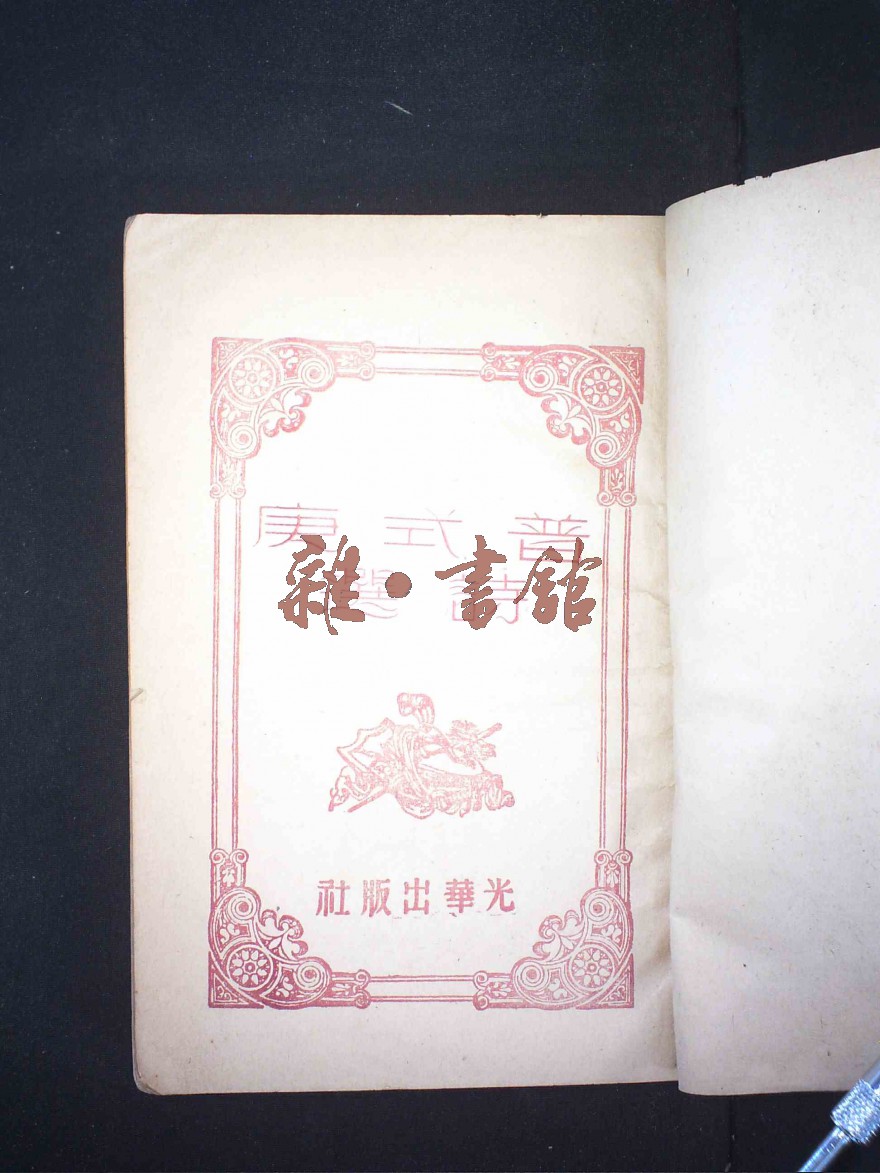 普式庚
詩選
雜·書館
光華出版社